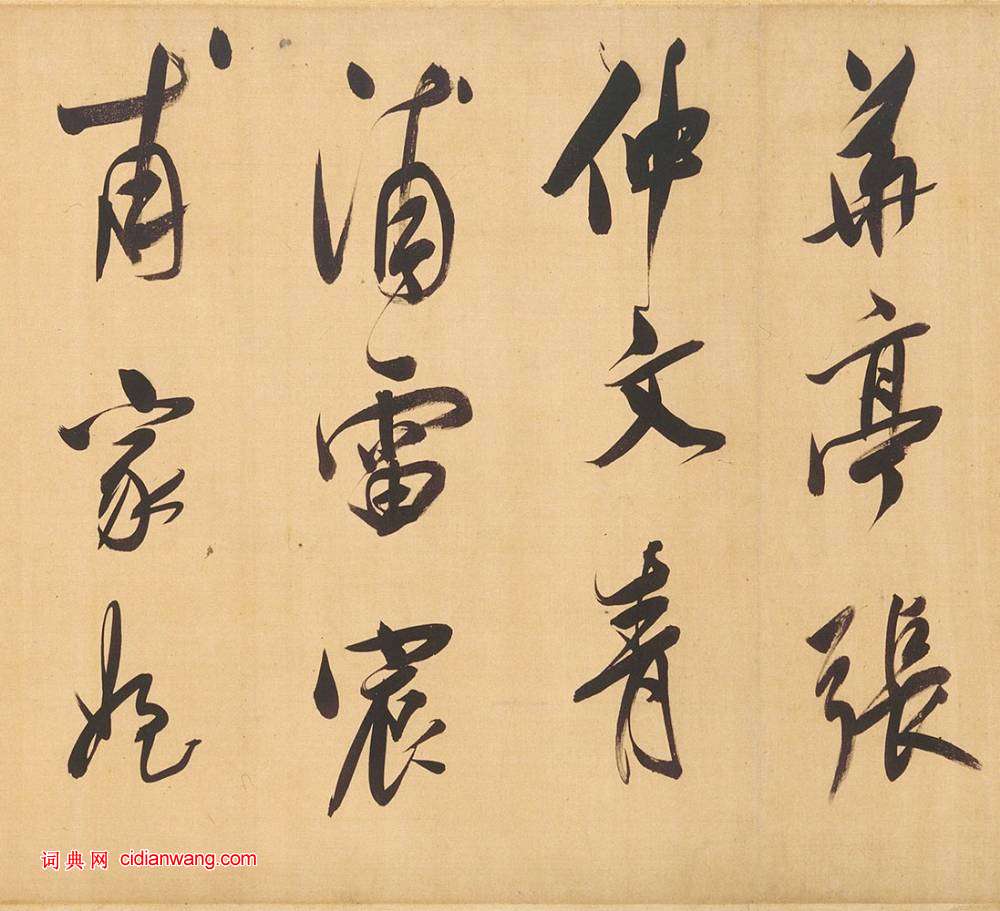 華亭張
仲文青
浦雷
甫家姪
词典网 cidianwang.com